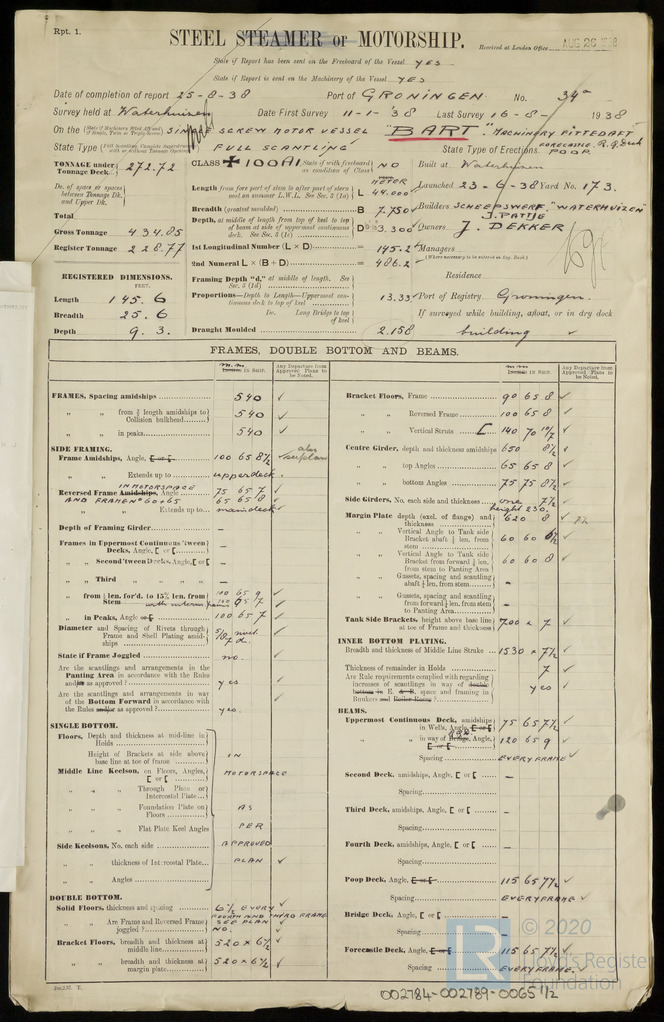 Rpt. 1.
STEEL STEAMER or MOTORSHIP.
Received at London Office AUG 26 1938
State if Report has been sent on the Freeboard of the Vessel YES
State if Report is sent on the Machinery of the Vessel YES
Date of completion of report 25-8-38 Port of GRONINGEN No. 34
Survey held at Waterhuizen Date First Survey 11-1-'38 Last Survey 16-8- 1938
On the SINGLE SCREW MOTOR VESSEL "BART". MACHINERY FITTED AFT
State Type FULL SCANTLING State Type of Erections FORECASTLE, R.Q. Deck POOP
TONNAGE under Tonnage Deck 272.72
CLASS ✠ 100A1 State if with freeboard as condition of Class NO
Built at Waterhuizen
Do. of space or spaces between Tonnage Dk. and Upper Dk.
Total
Gross Tonnage 434.85
Register Tonnage 228.77
METER
Length from fore part of stem to after part of stern post on summer L.W.L. See Sec. 3 (1a) L 44.000
Breadth (greatest moulded) B 7.750
Depth, at middle of length from top of keel to top of beam at side of uppermost continuous deck. See Sec. 3 (1c) D 3.300
1st Longitudinal Number (L × D) = 145.2
2nd Numeral L × (B + D) = 486.2
Framing Depth "d," at middle of length. See Sec. 3 (1d)
Proportions—Depth to Length—Uppermost continuous deck to top of keel 13.33
Do. Long Bridge to top of keel
Draught Moulded 2.158
Launched 23-6-38 Yard No. 173.
Builders SCHEEPSWERF. "WATERHUIZEN" J. PATTJE
Owners J. DEKKER
Managers
(Where necessary to be entered in Reg. Book)
Residence
Port of Registry Groningen.
If surveyed while building, afloat, or in dry dock
building
REGISTERED DIMENSIONS.
FEET.
Length 145.6
Breadth 25.6
Depth 9.3.
FRAMES, DOUBLE BOTTOM AND BEAMS.
m.m
IN SHIP.
Any Departure from Approved Plans to be Noted.
FRAMES, Spacing amidships 540 ✓
" " from ⅕ length amidships to Collision bulkhead 540 ✓
" " in peaks 540 ✓
SIDE FRAMING.
Frame Amidships, Angle, [ or [ 100 65 8½ ✓
" " Extends up to upperdeck.
IN MOTORSPACE
Reversed Frame Amidships, Angle 75 65 7 ✓
AND FRAMEN° 60+65 65 65 8 ✓
" " Extends up to maindeck ✓
Depth of Framing Girder –
Frames in Uppermost Continuous 'tween Decks, Angle, [ or [ –
" " Second 'tween Decks, Angle, [ or [ –
" " Third " " –
" " from ⅕ len. for'd. to 15% len. from Stem 100 65 9 ✓
" " in Peaks, Angle or [ 100 65 7 ✓
Diameter and Spacing of Rivets through Frame and Shell Plating amidships
State if Frame Joggled no. ✓
Are the scantlings and arrangements in the Panting Area in accordance with the Rules and/or as approved? yes ✓
Are the scantlings and arrangements in way of the Bottom Forward in accordance with the Rules and/or as approved? yes. ✓
SINGLE BOTTOM.
Floors, Depth and thickness at mid-line in Holds
" Height of Brackets at side above base line at toe of frame IN
Middle Line Keelson, on Floors, Angles, [ or [ MOTORSPACE
" " Through Plate or Intercostal Plate
" " Foundation Plate on Floors AS
" " Flat Plate Keel Angles PER
Side Keelsons, No. each side APPROVED
" " thickness of Intercostal Plate PLAN ✓
" " Angles
DOUBLE BOTTOM.
Solid Floors, thickness and spacing 6½ EVERY
FOURTH AND THIRD FRAME SEE PLAN ✓
" Are Frame and Reversed Frame joggled? NO. ✓
Bracket Floors, breadth and thickness at middle line 520 × 6½ ✓
" " breadth and thickness at margin plate 520 × 6½ ✓
m.m
IN SHIP.
Any Departure from Approved Plans to be Noted.
Bracket Floors, Frame 90 65 8 ✓
" " Reversed Frame 100 65 8 ✓
" " Vertical Struts [ 140 70 10/7 ✓
Centre Girder, depth and thickness amidships 650 8½ ✓
" " top Angles 65 65 8 ✓
" " bottom Angles 75 75 8½ ✓
Side Girders, No. each side and thickness one 7½ ✓
height 230.
Margin Plate depth (excl. of flange) and thickness 620 8 ✓
" " Vertical Angle to Tank side Bracket abaft ¼ len. from stem 60 60 6½ ✓
" " Vertical Angle to Tank side Bracket from forward ¼ len. from stem to Panting Area 60 60 8 ✓
" " Gussets, spacing and scantling abaft ¼ len. from stem –
" " Gussets, spacing and scantling from forward ¼ len. from stem to Panting Area –
Tank Side Brackets, height above base line at toe of Frame and thickness 700 × 7 ✓
INNER BOTTOM PLATING.
Breadth and thickness of Middle Line Strake 1530 × 7½ ✓
Thickness of remainder in Holds 7 ✓
Are Rule requirements complied with regarding increases of scantlings in way of double bottom in E. & B. space and framing in Bunkers and Boiler Room? yes ✓
BEAMS.
Uppermost Continuous Deck, amidships in Wells, Angle, [ or [ 75 65 7½ ✓
" " in way of Bridge, Angle, [ or [ 120 65 9 ✓
Spacing EVERY FRAME ✓
Second Deck, amidships, Angle, [ or [ –
Spacing
Third Deck, amidships, Angle, [ or [ –
Spacing
Fourth Deck, amidships, Angle, [ or [ –
Spacing
Poop Deck, Angle, [ or [ 115 65 7½ ✓
Spacing EVERY FRAME ✓
Bridge Deck, Angle, [ or [ –
Spacing
Forecastle Deck, Angle, [ or [ 115 65 7½ ✓
Spacing EVERY FRAME. ✓
© 2020
LR
Lloyd's Register Foundation
002784-002789-0065 1/2